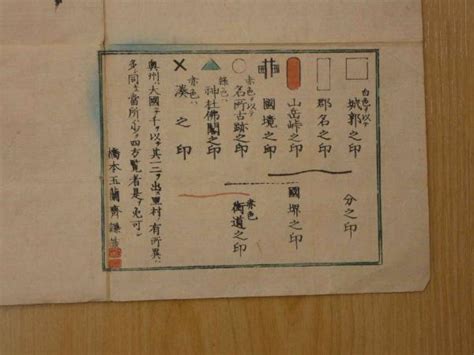 白色ヲ以テ
城郭之印
郡名之印
山岳峠之印
國境之印
名所古跡之印
緑色
神社佛閣之印
赤色
湊之印
分之印
國堺之印
赤色
街道之印
奥州ハ大國ニ 千ヲ以テ其一二ヲ出ス里村ノ有所異
多 同 當所少 四方覧者是ヲ免可シ
橋本玉蘭齊謙誌